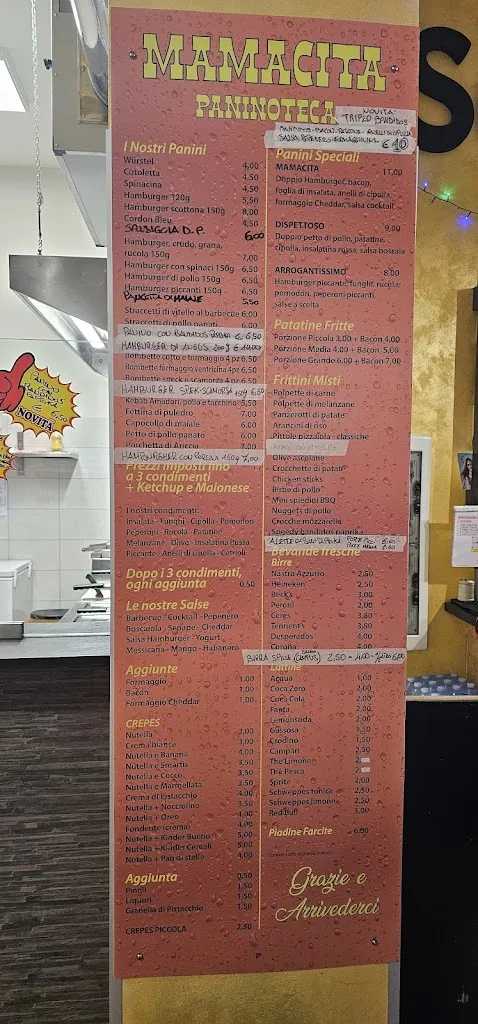 MAMACITA
PANINOTECA
NOVITA'
TRIPLO BANDIDOS
€ 10
I Nostri Panini
Würstel 4,00
Cotoletta 4,50
Spinacina 4,50
Hamburger 120g 5,50
Hamburger scottona 150g 8,00
Cordon Bleu 4,50
SALSICCIA D.P. 6,00
Hamburger, crudo, grana,
rucola 150g 7,00
Hamburger con spinaci 150g 6,50
Hamburger di pollo 150g 6,50
Hamburger piccanti 150g 6,50
5,50
Straccetti di vitello al barbecue 6,00
Straccetti di pollo panati 6,00
PANINO CON BANDIDOS € 6,50
HAMBURGER DI ANGUS 200g
Bombette cotto e formaggio 4pz 6,50
Bombette formaggio ventricina 4pz 6,50
Bombette speck e scamorza 4pz 6,50
HAMBURGER SPEK-SCAMORZA 150g 6,50
Kebab Amadori, pollo e tacchino 5,50
Fettina di puledro 7,00
Capocollo di maiale 6,00
Petto di pollo panato 6,00
Porchetta di Ariccia 7,00
HAMBURGHER CON PORCINI 150g 7,00
Prezzi imposti fino
a 3 condimenti
+ Ketchup e Maionese
I nostri condimenti:
Insalata - Funghi - Cipolla - Pomodori
Peperoni - Rucola - Patatine
Melanzane - Olive - Insalatina Russa
Piccante - Anelli di cipolla - Cetrioli
Dopo i 3 condimenti,
ogni aggiunta 0,50
Le nostre Salse
Barbecue - Cocktail - Pepenero
Boscaiola - Senape - Cheddar
Salsa Hamburger - Yogurt
Messicana - Mango - Habanero
Aggiunte
Formaggio 1,00
Bacon 1,00
Formaggio Cheddar 1,00
CREPES
Nutella 3,00
Crema bianca 3,00
Nutella e Banana 4,00
Nutella e Smartis 3,50
Nutella e Cocco 3,50
Nutella e Marmellata 3,50
Crema di pistacchio 4,00
Nutella + Nocciolino 3,50
Nutella + Oreo 4,00
Fondente (crema) 4,00
Nutella + Kinder Bueno 5,00
Nutella + Kinder Cereali 5,00
Nutella + Pan di stelle 4,00
Aggiunta 0,50
Pinoli 1,50
Liquori 1,50
Granella di Pistacchio 1,50
CREPES PICCOLA 2,50
Panini Speciali
MAMACITA 11,00
Doppio Hamburger, bacon,
foglia di insalata, anelli di cipolla,
formaggio Cheddar, salsa cocktail
DISPETTOSO 9,00
Doppio petto di pollo, patatine,
cipolla, insalatina russa, salsa boscaia
ARROGANTISSIMO 8,00
Hamburger piccante, funghi, rucola,
pomodori, peperoni piccanti,
salsa a scelta
Patatine Fritte
Porzione Piccola 3,00 + Bacon 4,00
Porzione Media 4,00 + Bacon 5,00
Porzione Grande 6,00 + Bacon 7,00
Frittini Misti
Polpette di carne
Polpette di melanzane
Panzerotti di patate
Arancini di riso
Pittole pizzaiola - classiche
Olive ascolane
Crocchette di patate
Chicken sticks
Birbe di pollo
Mini spiedini BBQ
Nuggets di pollo
Crocche mozzarella
Speedy bandidos paprika
Bevande fresche
Birre
Nastro Azzurro 2,50
Heineken 2,50
Beck's 3,00
Peroni 2,00
Ceres 3,50
Tennent's 3,50
Desperados 4,00
Corona 4,00
BIRRA SPINA 2,50 - 4,00
Lattine
Acqua 1,00
Coca Zero 2,00
Coca Cola 2,00
Fanta 2,00
Lemonsoda 2,00
Gassosa 1,50
Crodino 1,50
Campari 2,50
The Limone
The Pesca
Sprite 2,00
Schweppes tonica 2,50
Schweppes limone 2,50
Red Bull 3,00
Piadine Farcite 6,00
Grazie e
Arrivederci
NOVITÀ
S